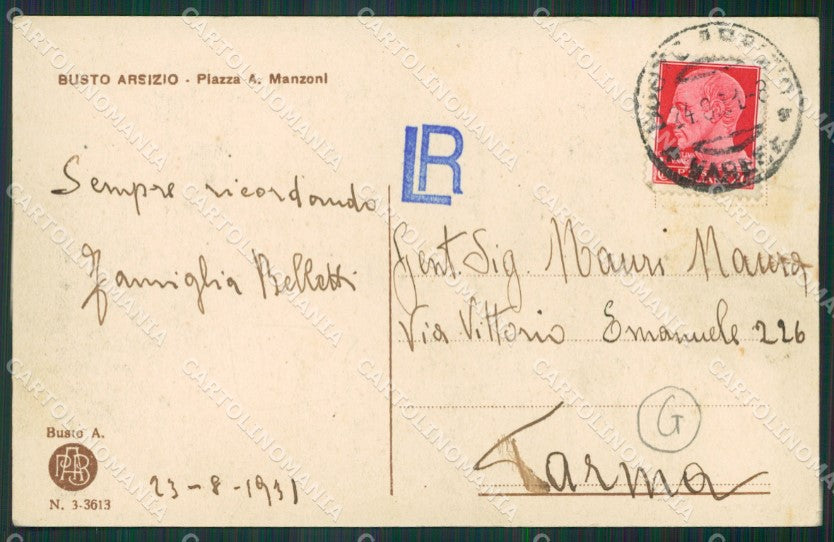 BUSTO ARSIZIO - Piazza A. Manzoni
LR
Sempre ricordando
famiglia Belletti
Gent. Sig. Mauri Maura
Via Vittorio Emanuele 226
G
Parma
Busto A.
N. 3-3613
23-8-1931
CARTOLINOMANIA